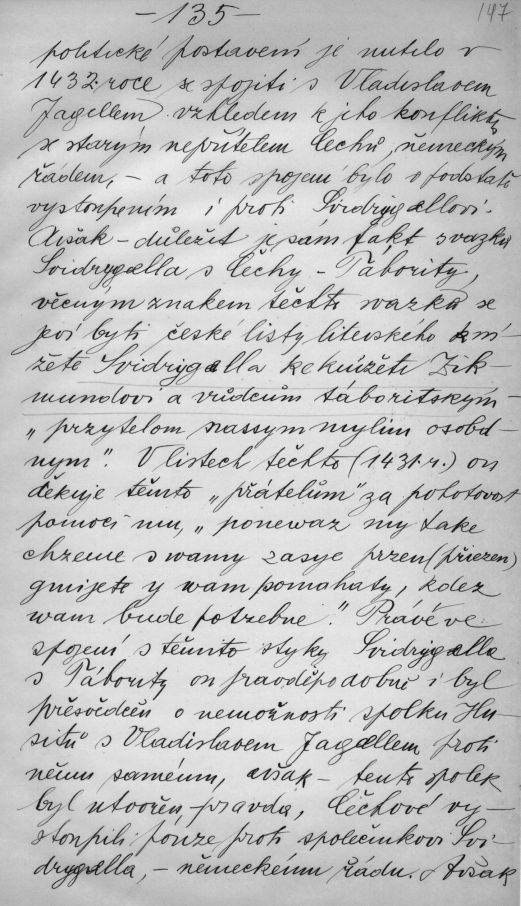 — 135 —
147
politické postavení je nutilo v
1432. roce se spojiti s Vladislavem
Jagellem vzhledem k jeho konfliktu
se starým nepřítelem Čechů, německým
řádem, – a toto spojení bylo v podstatě
vystoupením i proti Svidrygællovi.
Avšak – důležit je sám fakt svazku
Svidrygælla s Čechy – Tábority,
věcnym znakem těchto svazků se
jeví byti české listy litevskeho kní-
žete Svidrygælla ke knížeti Zik-
mundovi a vůdcům táboritským –
„přzytelom nassym mylim osobd-
nym". V listech těchto (1431. r.) on
děkuje těmto „přátelům" za pohotovost
pomoci mu, „ponewaz my take
chzeme swamy zasye przen (přiezen)
gmijete y wam pomahaty, kdez
wam bude potrzebne." Právě ve
spojení s těmito styky Svidrygælla
s Tábority on pravděpodobně i byl
přesvědčen o nemožnosti spolku Hu-
sitů s Vladislavem Jagællem proti
němu samému, avšak – tento spolek
byl utvořen, – pravda, Čechové vy-
stoupili pouze proti společníkovi Svi-
drygælla, – německému řádu. Avšak